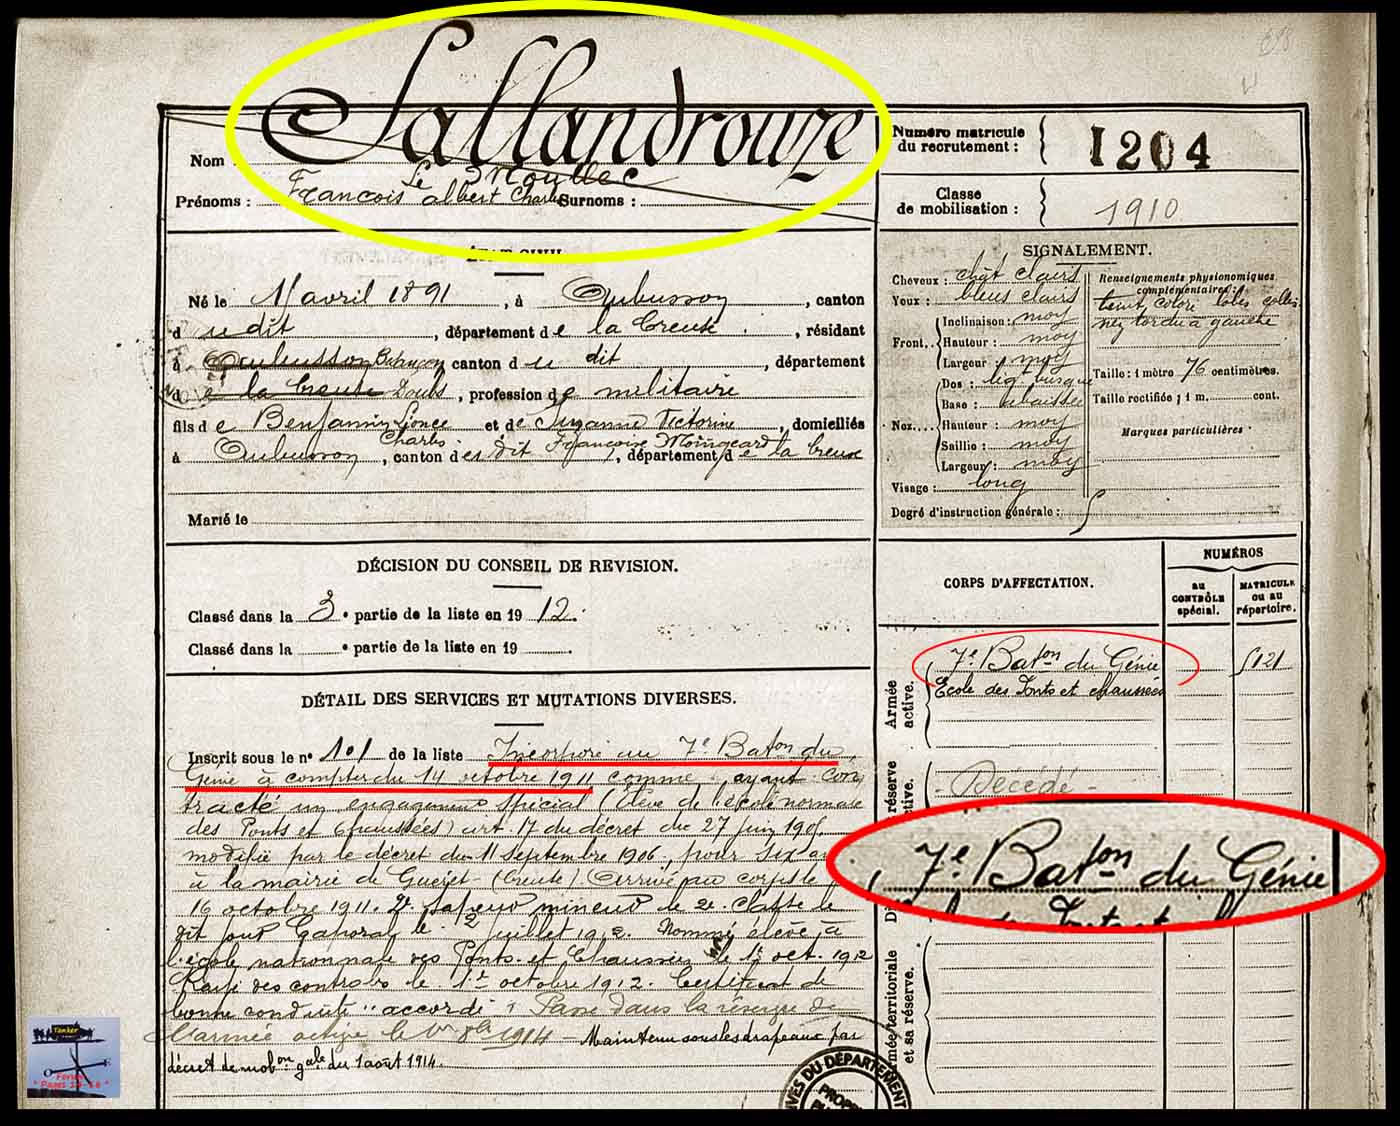 Sallandrouze
Nom :
Le Moullec
Prénoms : François albert Charles Surnoms :
Numéro matricule
du recrutement : 1204
Classe
de mobilisation : 1910
ÉTAT CIVIL
Né le 11 avril 1891, à Aubusson, canton
du dit, département de la Creuse, résidant
à Aubusson Besançon canton du dit, département
de la Creuse Doubs, profession de militaire
fils de Benjamin Léonce et de Suzanne Victorine, domiciliés
Charles Françoise Moingeard
à Aubusson, canton du dit, département de la Creuse
Marié le
SIGNALEMENT.
Cheveux : chât clairs
Yeux : bleus clairs
Front. Inclinaison : moy
Hauteur : moy
Largeur : moy
Nez. Dos : busqué
Base : abaissée
Hauteur : moy
Saillie : moy
Largeur : moy
Visage : long
Degré d'instruction générale :
Renseignements physionomiques
complémentaires :
teint coloré lobes
nez tordu à gauche
Taille : 1 mètre 76 centimètres.
Taille rectifiée : 1 m. cent.
Marques particulières
DÉCISION DU CONSEIL DE REVISION.
Classé dans la 3e partie de la liste en 1912.
Classé dans la e partie de la liste en 19
CORPS D'AFFECTATION.
NUMÉROS
AU
CONTRÔLE
spécial.
MATRICULE
ou au
répertoire.
Armée
active.
7e Baton du Génie
École des Ponts et chaussées
Décédé
7e Baton du Génie
DÉTAIL DES SERVICES ET MUTATIONS DIVERSES.
Inscrit sous le n° 101 de la liste Incorporé au 7e Baton du
Génie à compter du 14 octobre 1911 comme ayant con
tracté un engagement spécial (élève de l'école normale
des Ponts et Chaussées) art. 17 du décret du 27 juin 1905,
modifié par le décret du 11 Septembre 1906, pour six
à la mairie de Guéret (Creuse) Arrivé au corps le
16 octobre 1911. sapeur mineur de 2e Classe le
dit jour Caporal le 2 juillet 1912. Nommé élève à
l'école nationale des Ponts et Chaussées le 1er oct. 1912
Rayé des controles le 1er octobre 1912. Certificat de
bonne conduite "accordé" Passé dans la réserve de
l'armée active le 1914 Maintenu sous les drapeaux par
décret de mobon gale du 1 août 1914.
Armée territoriale
et sa réserve.
DU DÉPARTEMENT
Tanker
Forum
"Pages 14-18"